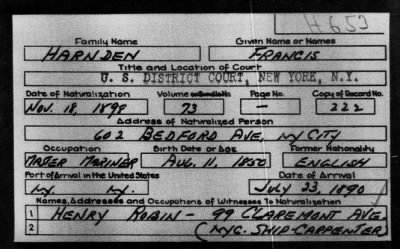 H 653
Family Name Given Name or Names
HARNDEN FRANCIS
Title and Location of Court
U. S. DISTRICT COURT, NEW YORK, N.Y.
Date of Naturalization Volume or Bundle No. Page No. Copy of Record No.
NOV. 18, 1899 73 — 222
Address of Naturalized Person
602 BEDFORD AVE, NY CITY
Occupation Birth Date or Age Former Nationality
MASTER MARINER AUG. 11, 1850 ENGLISH
Port of Arrival in the United States Date of Arrival
N.Y. N.Y. JULY 23, 1890
Names, Addresses and Occupations of Witnesses To Naturalization
1 HENRY ROBIN - 99 CLAREMONT AVE.
2 (NYC. SHIP-CARPENTER)